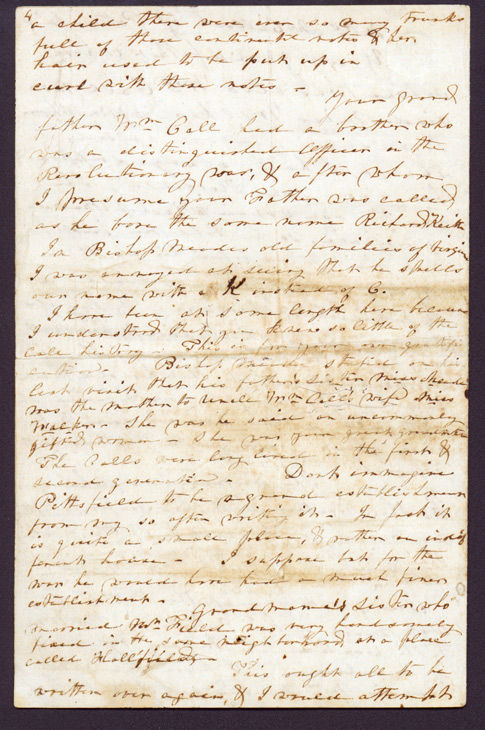 4
a child there were ever so many trunks
full of those continental notes & her
hair used to be put up in
curl with these notes -
Your grand
father Wm Call had a brother who
was a distinguished Officer in the
Revolutionary war, & after whom
I presume your Father was called
as he bore the same name Richard Keith
In Bishop Meades old families of Virgin
I was annoyed at seeing that he spells
our name with a K instead of C.
I have been at some length here because
I understood that you knew so little of the
Call history - This is for your own
Bishop Meade stated on his
last visit that his father's sister Miss Meade
was the mother to Uncle Wm Call's wife Miss
Walker - She was he said an uncommonly
gifted woman - She was your
The Calls were long lived in the first &
second generation - Don't immagine
Pittsfield to be a grand establishment
from my so often writing it - In fact it
is quite a small place, & rather an indif
ferent house - I suppose but for the
war he would have had a much finer
establishment -
Grandmama's sister who
married Mr Field was very handsomely
fixed in the same neighborhood at a place
called Hallfields -
This ought all to be
written over again, & I would attempt